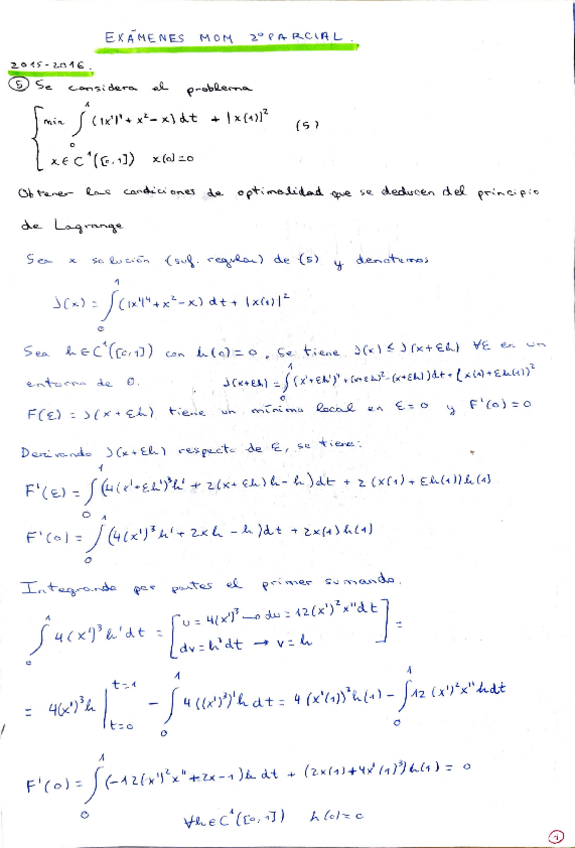 EXÁMENES MOM 2º PARCIAL.
2015-2016.
⑤ Se considera el problema
{ min ∫₀¹ (|x'|⁴ + x² - x) dt + |x(1)|² (5)
x ∈ C¹([0,1]) x(0)=0
Obtener las condiciones de optimalidad que se deducen del principio
de Lagrange
Sea x solución (suf. regular) de (5) y denotemos
J(x) = ∫₀¹ (|x'|⁴ + x² - x) dt + |x(1)|²
Sea h ∈ C¹([0,1]) con h(0)=0, Se tiene J(x) ≤ J(x+εh) ∀ε en un
entorno de 0. J(x+εh) = ∫₀¹ (x'+εh')⁴ + (x+εh)² - (x+εh))dt + (x(1)+εh(1))²
F(ε) = J(x+εh) tiene un mínimo local en ε=0 y F'(0)=0
Derivando J(x+εh) respecto de ε, se tiene:
F'(ε) = ∫₀¹ (4(x'+εh')³h' + 2(x+εh)h - h)dt + 2(x(1)+εh(1))h(1)
F'(0) = ∫₀¹ (4(x')³h' + 2xh - h)dt + 2x(1)h(1)
Integrando por partes el primer sumando.
∫₀¹ 4(x')³h'dt = [u = 4(x')³ → du = 12(x')²x''dt
dv = h'dt → v = h] =
= 4(x')³h |ₜ₌₀ᵗ⁼¹ - ∫₀¹ 4((x')³)'h dt = 4(x'(1))³h(1) - ∫₀¹ 12(x')²x''hdt
F'(0) = ∫₀¹ (-12(x')²x'' + 2x - 1)h dt + (2x(1) + 4x'(1)³)h(1) = 0
∀h∈C¹([0,1]) h(0)=0
①